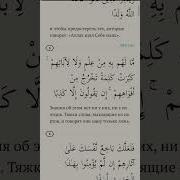 اللَّهُ وَلَدًا
и чтобы предостеречь тех, которые
говорят: «Аллах взял Себе сына».
مَّا لَهُم بِهِ مِنْ عِلْمٍ وَلَا لِآبَائِهِمْ
كَبُرَتْ كَلِمَةً تَخْرُجُ مِنْ
أَفْوَاهِهِمْ إِن يَقُولُونَ إِلَّا كَذِبًا
Знания об этом нет ни у них, ни у их
отцов. Тяжки слова, выходящие из их
ртов, и говорят они одну только ложь.
فَلَعَلَّكَ بَاخِعٌ نَّفْسَكَ عَلَىٰ
آثَارِهِمْ إِن لَّمْ يُؤْمِنُوا بِهَٰذَا